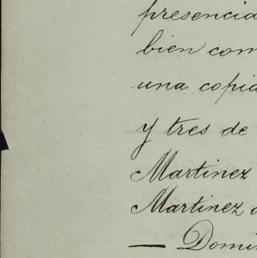 presencia
bien com
una copia
y tres de
Martinez
Martinez
— Domi